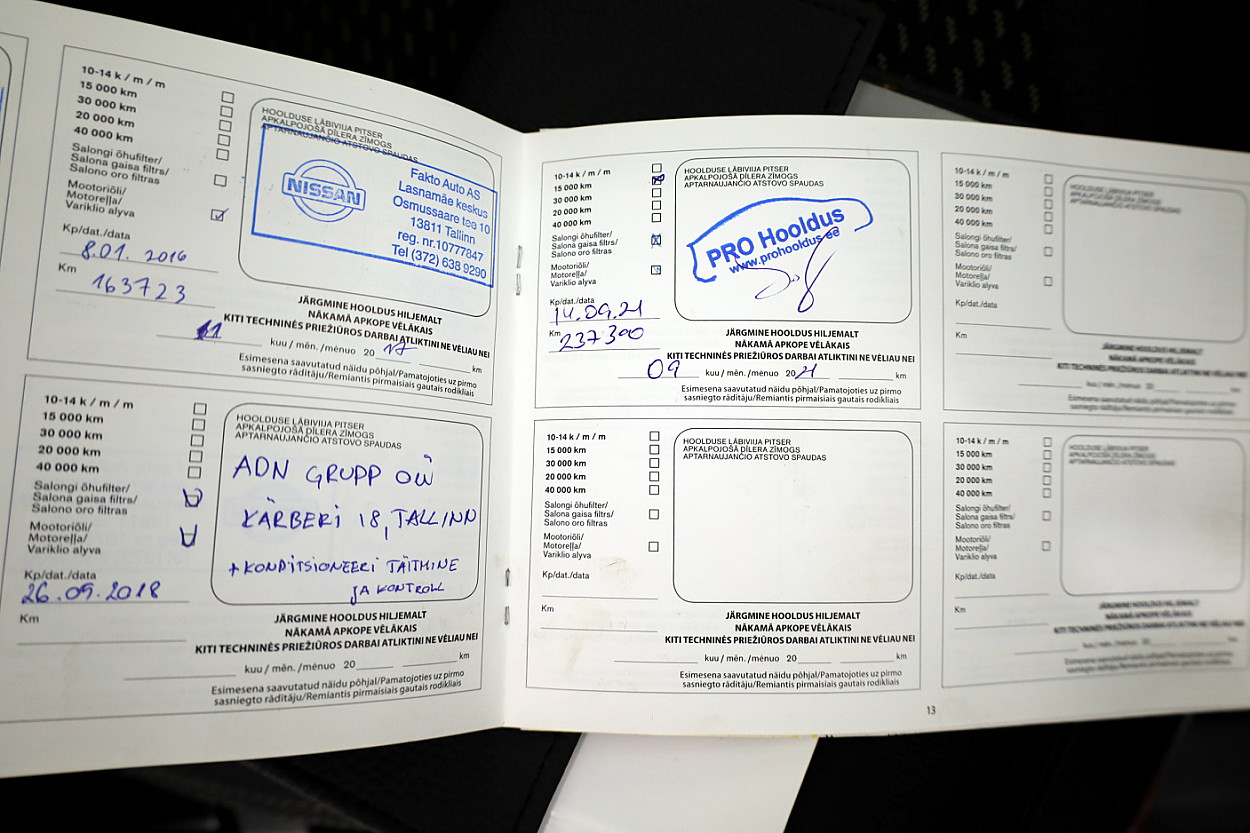 10-14 k / m / m
15 000 km
30 000 km
20 000 km
40 000 km
Salongi õhufilter/
Salona gaisa filtrs/
Salono oro filtras
Mootoriõli/
Motoreļļa/
Variklio alyva
Kp/dat./data
8.01. 2016
Km
163723
HOOLDUSE LÄBIVIIJA PITSER
APKALPOJOŠĀ DĪLERA ZĪMOGS
APTARNAUJANČIO ATSTOVO SPAUDAS
NISSAN
Fakto Auto AS
Lasnamäe keskus
Osmussaare tee 10
13811 Tallinn
reg. nr.10777847
Tel (372) 638 9290
JÄRGMINE HOOLDUS HILJEMALT
NĀKAMĀ APKOPE VĒLĀKAIS
KITI TECHNINĖS PRIEŽIŪROS DARBAI ATLIKTINI NE VĖLIAU NEI
kuu / mēn. /mėnuo 20 17 km
Esimesena saavutatud näidu põhjal/Pamatojoties uz pirmo
sasniegto rādītāju/Remiantis pirmaisiais gautais rodikliais
10-14 k / m / m
15 000 km
30 000 km
20 000 km
40 000 km
Salongi õhufilter/
Salona gaisa filtrs/
Salono oro filtras
Mootoriõli/
Motoreļļa/
Variklio alyva
Kp/dat./data
26.09.2018
Km
HOOLDUSE LÄBIVIIJA PITSER
APKALPOJOŠĀ DĪLERA ZĪMOGS
APTARNAUJANČIO ATSTOVO SPAUDAS
ADN GRUPP OÜ
KÄRBERI 18, TALLINN
+ KONDITSIONEERI TÄITMINE
JA KONTROLL
JÄRGMINE HOOLDUS HILJEMALT
NĀKAMĀ APKOPE VĒLĀKAIS
KITI TECHNINĖS PRIEŽIŪROS DARBAI ATLIKTINI NE VĖLIAU NEI
kuu / mēn. /mėnuo 20 km
Esimesena saavutatud näidu põhjal/Pamatojoties uz pirmo
sasniegto rādītāju/Remiantis pirmaisiais gautais rodikliais
10-14 k / m / m
15 000 km
30 000 km
20 000 km
40 000 km
Salongi õhufilter/
Salona gaisa filtrs/
Salono oro filtras
Mootoriõli/
Motoreļļa/
Variklio alyva
Kp/dat./data
14.09.21
Km
237300
HOOLDUSE LÄBIVIIJA PITSER
APKALPOJOŠĀ DĪLERA ZĪMOGS
APTARNAUJANČIO ATSTOVO SPAUDAS
PRO Hooldus
www.prohooldus.ee
JÄRGMINE HOOLDUS HILJEMALT
NĀKAMĀ APKOPE VĒLĀKAIS
KITI TECHNINĖS PRIEŽIŪROS DARBAI ATLIKTINI NE VĖLIAU NEI
09 kuu / mēn. /mėnuo 20 21 km
Esimesena saavutatud näidu põhjal/Pamatojoties uz pirmo
sasniegto rādītāju/Remiantis pirmaisiais gautais rodikliais
10-14 k / m / m
15 000 km
30 000 km
20 000 km
40 000 km
Salongi õhufilter/
Salona gaisa filtrs/
Salono oro filtras
Mootoriõli/
Motoreļļa/
Variklio alyva
Kp/dat./data
Km
HOOLDUSE LÄBIVIIJA PITSER
APKALPOJOŠĀ DĪLERA ZĪMOGS
APTARNAUJANČIO ATSTOVO SPAUDAS
JÄRGMINE HOOLDUS HILJEMALT
NĀKAMĀ APKOPE VĒLĀKAIS
KITI TECHNINĖS PRIEŽIŪROS DARBAI ATLIKTINI NE VĖLIAU NEI
kuu / mēn. /mėnuo 20 km
Esimesena saavutatud näidu põhjal/Pamatojoties uz pirmo
sasniegto rādītāju/Remiantis pirmaisiais gautais rodikliais
10-14 k / m / m
15 000 km
30 000 km
20 000 km
40 000 km
Salongi õhufilter/
Salona gaisa filtrs/
Salono oro filtras
Mootoriõli/
Motoreļļa/
Variklio alyva
Kp/dat./data
Km
10-14 k / m / m
15 000 km
30 000 km
20 000 km
40 000 km
Salongi õhufilter/
Salona gaisa filtrs/
Salono oro filtras
Mootoriõli/
Motoreļļa/
Variklio alyva
Kp/dat./data
Km
13